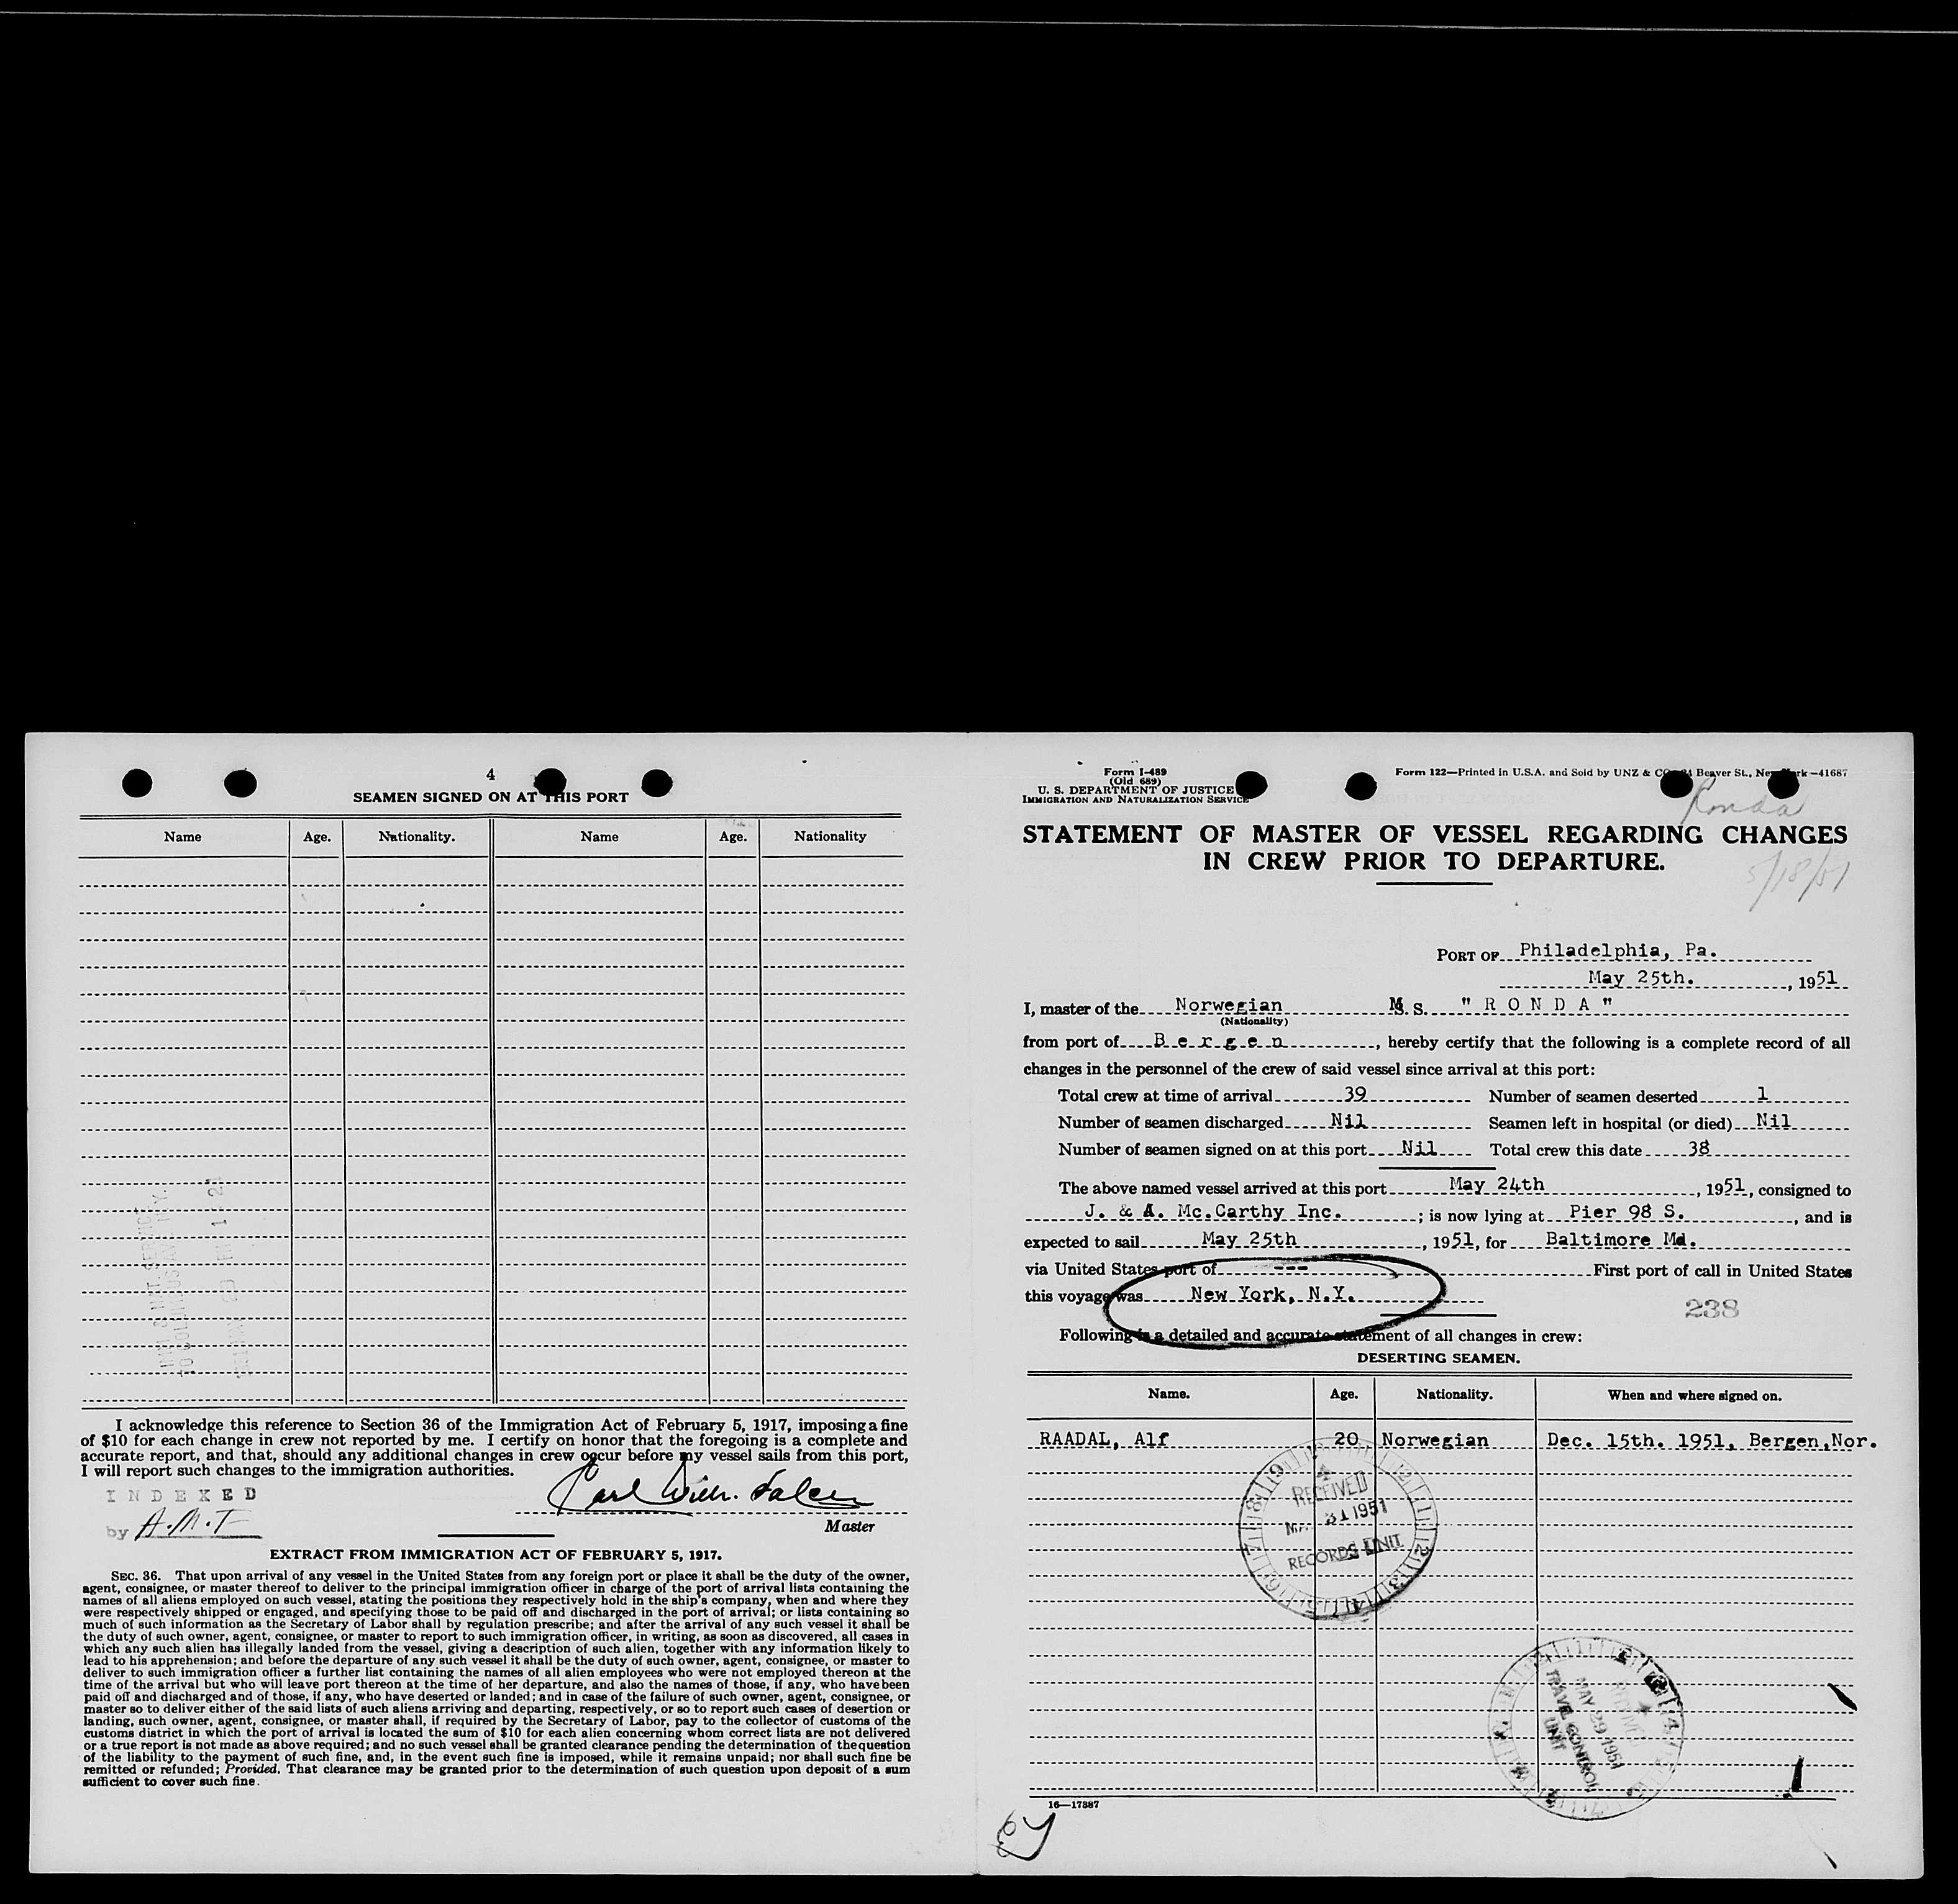 4
SEAMEN SIGNED ON AT THIS PORT
Name Age. Nationality. Name Age. Nationality
I acknowledge this reference to Section 36 of the Immigration Act of February 5, 1917, imposing a fine
of $10 for each change in crew not reported by me. I certify on honor that the foregoing is a complete and
accurate report, and that, should any additional changes in crew occur before my vessel sails from this port,
I will report such changes to the immigration authorities.
INDEXED
by A.M.T
Carl Wilh.
Master
EXTRACT FROM IMMIGRATION ACT OF FEBRUARY 5, 1917.
SEC. 36. That upon arrival of any vessel in the United States from any foreign port or place it shall be the duty of the owner,
agent, consignee, or master thereof to deliver to the principal immigration officer in charge of the port of arrival lists containing the
names of all aliens employed on such vessel, stating the positions they respectively hold in the ship's company, when and where they
were respectively shipped or engaged, and specifying those to be paid off and discharged in the port of arrival; or lists containing so
much of such information as the Secretary of Labor shall by regulation prescribe; and after the arrival of any such vessel it shall be
the duty of such owner, agent, consignee, or master to report to such immigration officer, in writing, as soon as discovered, all cases in
which any such alien has illegally landed from the vessel, giving a description of such alien, together with any information likely to
lead to his apprehension; and before the departure of any such vessel it shall be the duty of such owner, agent, consignee, or master to
deliver to such immigration officer a further list containing the names of all alien employees who were not employed thereon at the
time of the arrival but who will leave port thereon at the time of her departure, and also the names of those, if any, who have been
paid off and discharged and of those, if any, who have deserted or landed; and in case of the failure of such owner, agent, consignee, or
master so to deliver either of the said lists of such aliens arriving and departing, respectively, or so to report such cases of desertion or
landing, such owner, agent, consignee, or master shall, if required by the Secretary of Labor, pay to the collector of customs of the
customs district in which the port of arrival is located the sum of $10 for each alien concerning whom correct lists are not delivered
or a true report is not made as above required; and no such vessel shall be granted clearance pending the determination of the question
of the liability to the payment of such fine, and, in the event such fine is imposed, while it remains unpaid; nor shall such fine be
remitted or refunded; Provided, That clearance may be granted prior to the determination of such question upon deposit of a sum
sufficient to cover such fine.
Form I-489
(Old 689)
U. S. DEPARTMENT OF JUSTICE
IMMIGRATION AND NATURALIZATION SERVICE
Form 122—Printed in U.S.A. and Sold by UNZ & CO. Beaver St., New York—41687
Ronda
STATEMENT OF MASTER OF VESSEL REGARDING CHANGES
IN CREW PRIOR TO DEPARTURE.
5/18/51
PORT OF Philadelphia, Pa.
May 25th., 1951
I, master of the Norwegian M.S. "RONDA"
(Nationality)
from port of Bergen, hereby certify that the following is a complete record of all
changes in the personnel of the crew of said vessel since arrival at this port:
Total crew at time of arrival 39 Number of seamen deserted 1
Number of seamen discharged Nil Seamen left in hospital (or died) Nil
Number of seamen signed on at this port Nil Total crew this date 38
The above named vessel arrived at this port May 24th, 1951, consigned to
J. & A. Mc.Carthy Inc.; is now lying at Pier 98 S., and is
expected to sail May 25th, 1951, for Baltimore Md.
via United States port of --- First port of call in United States
this voyage was New York, N.Y.
238
Following is a detailed and accurate statement of all changes in crew:
DESERTING SEAMEN.
Name. Age. Nationality. When and where signed on.
RAADAL, Alf 20 Norwegian Dec. 15th. 1951, Bergen,Nor.
RECEIVED
31 1951
RECORDS UNIT
RECEIVED
MAY 29 1951
TRAVEL CONTROL
UNIT
16—17887